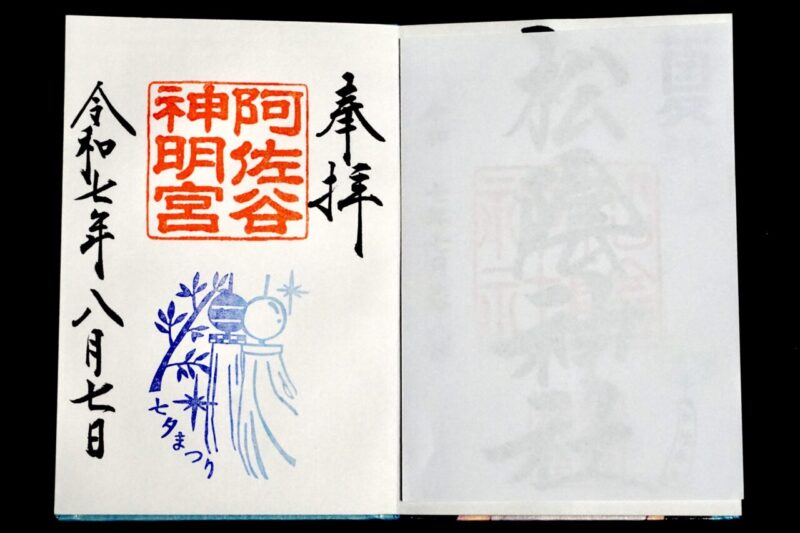 奉拝
阿佐谷
神明宮
七夕まつり
令和七年八月七日
松陰神社